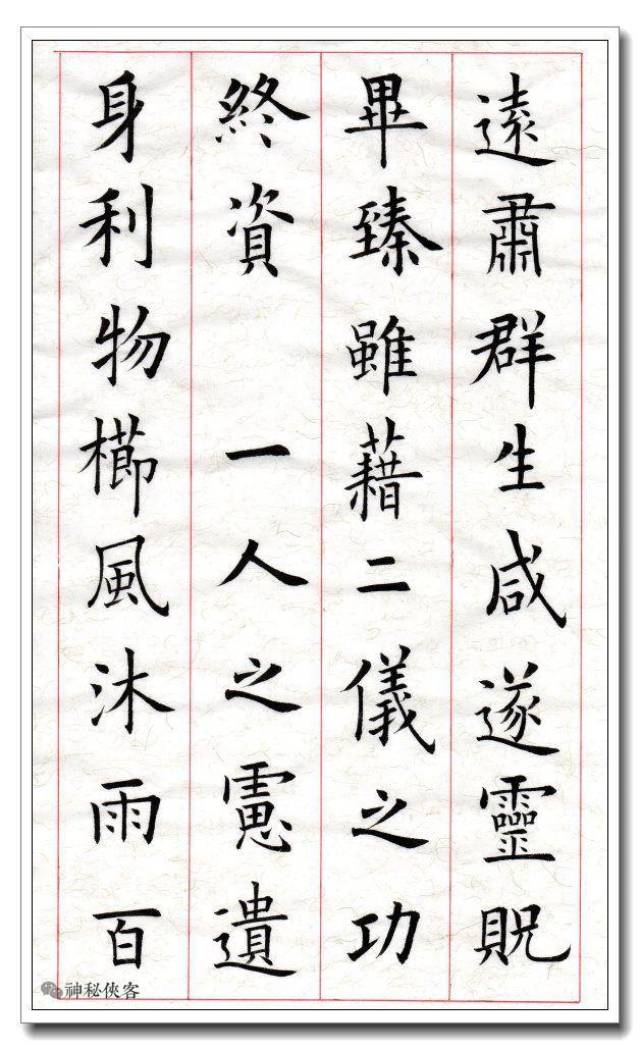 遠肅群生咸遂靈貺
畢臻雖藉二儀之功
終資 一人之慮遺
身利物櫛風沐雨百
神秘俠客